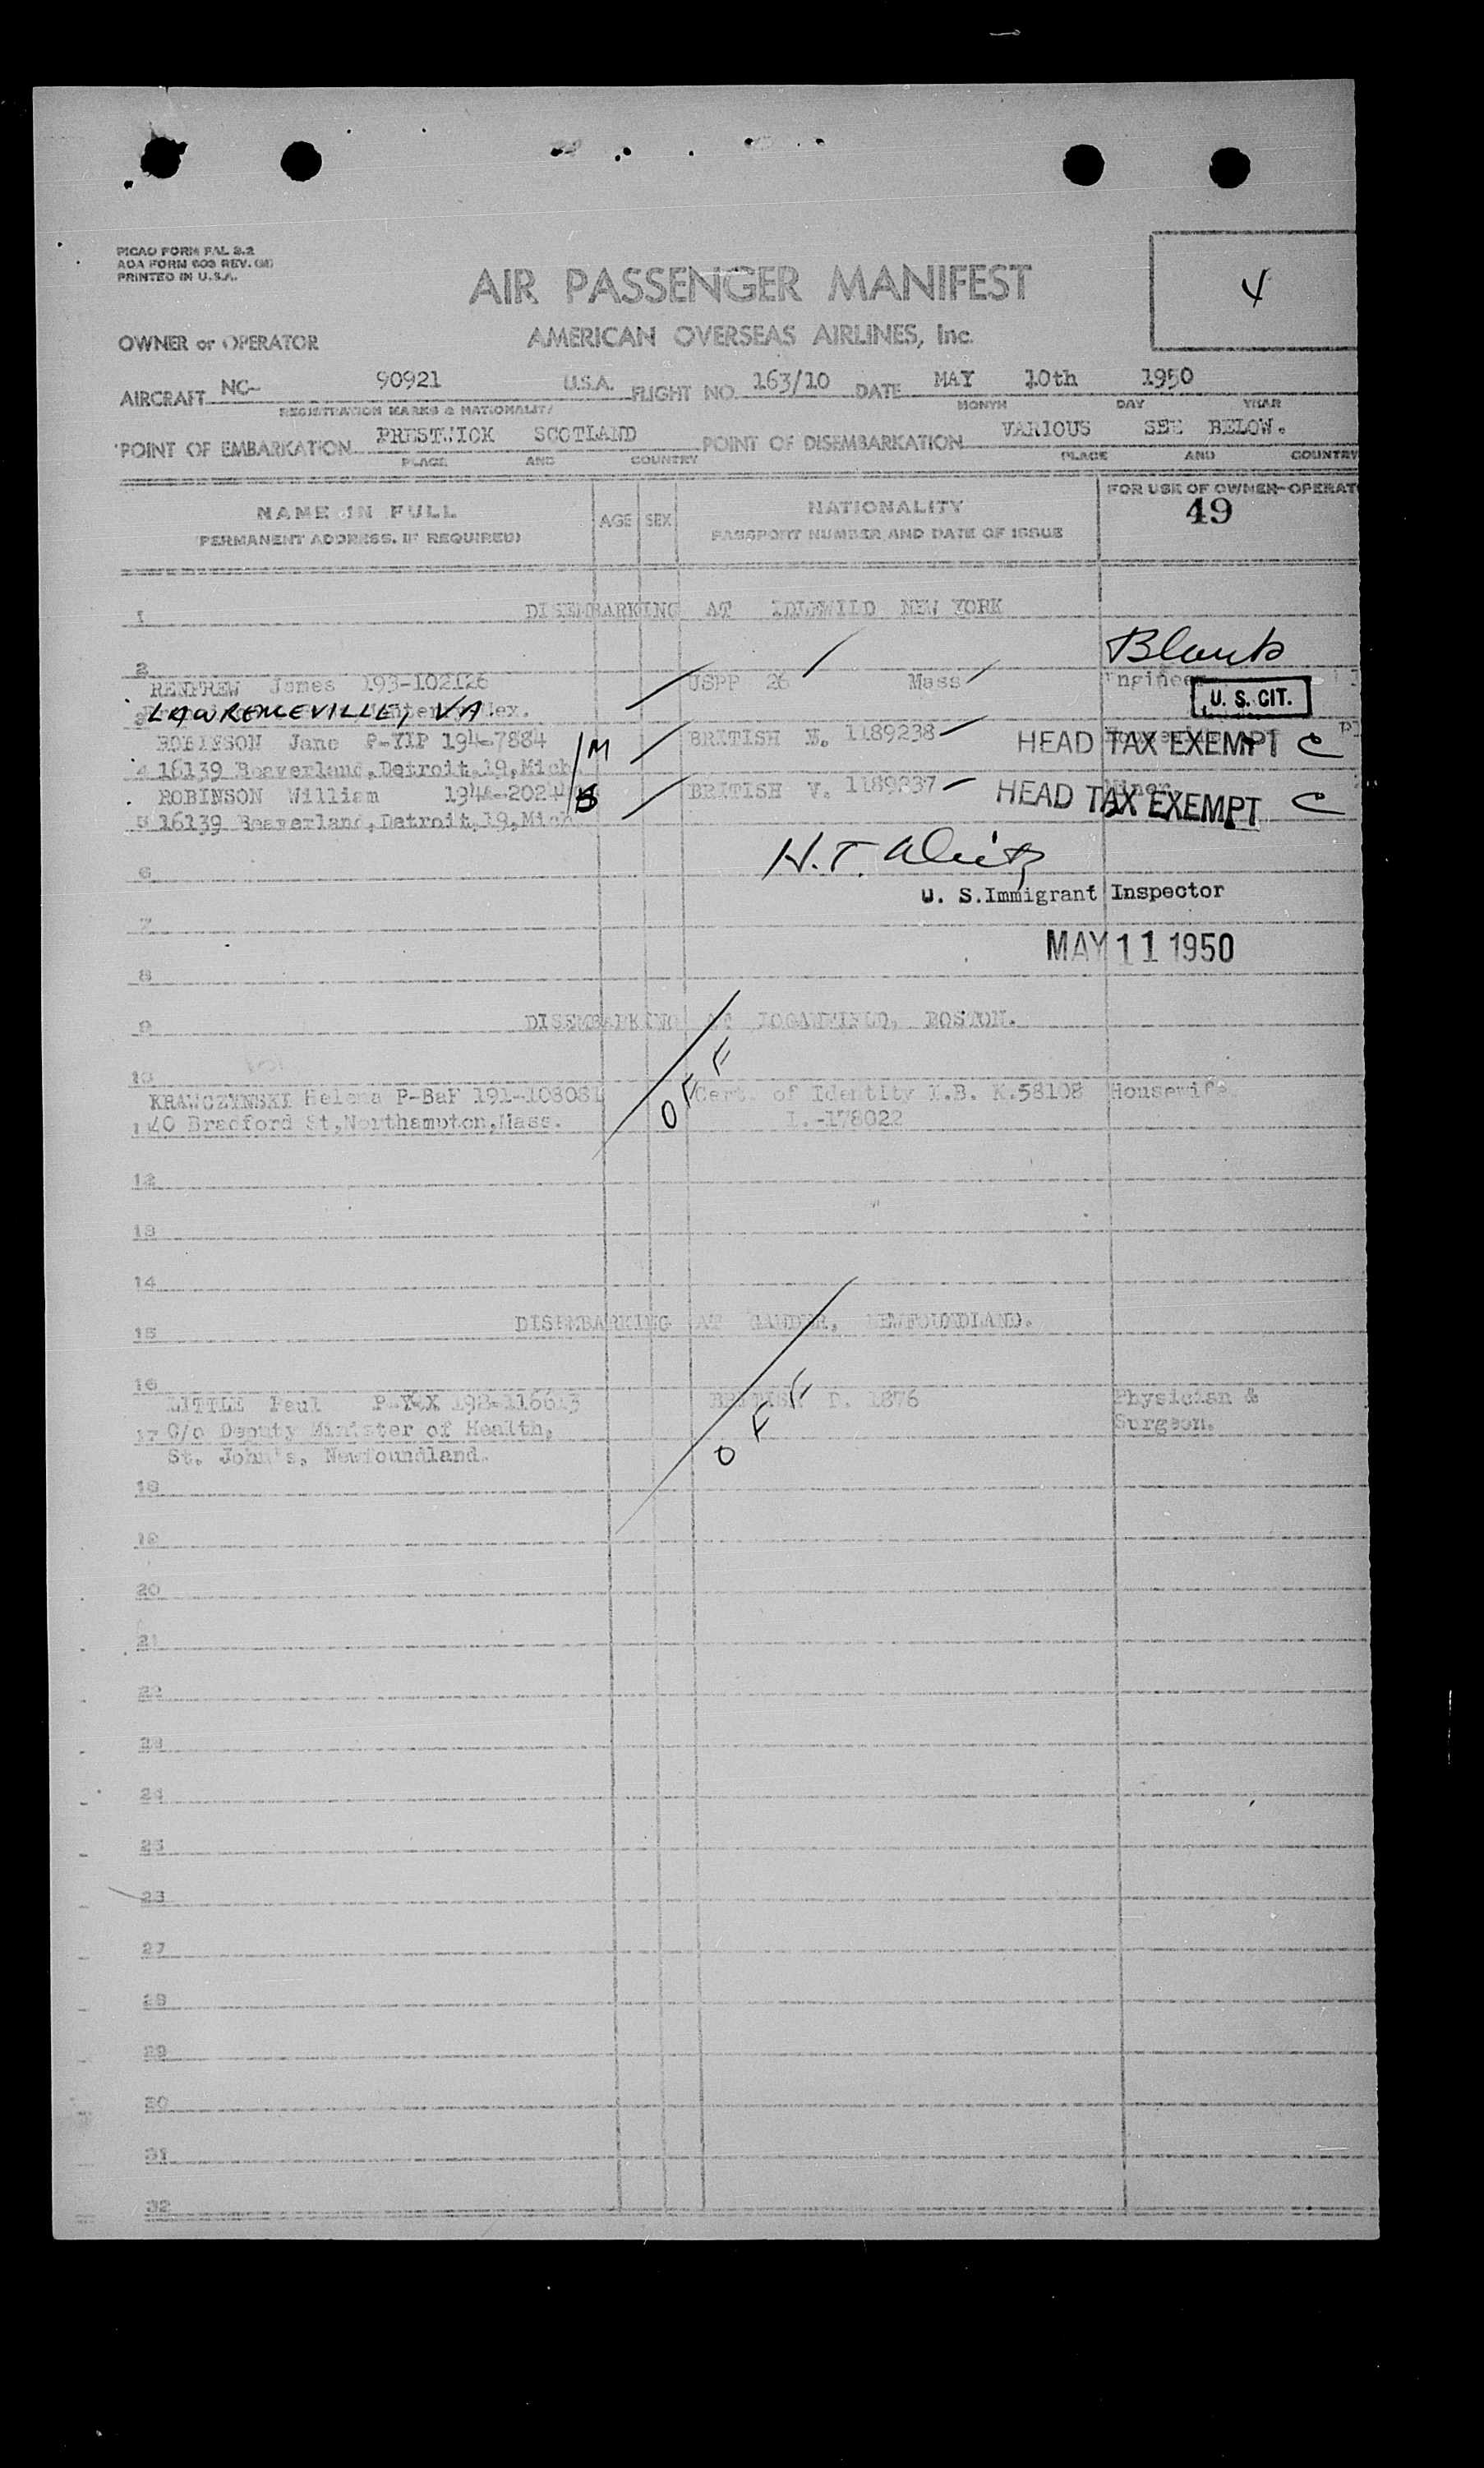 PICAO FORM FAL 2.2
AOA FORM 603 REV.
PRINTED IN U.S.A.
4
AIR PASSENGER MANIFEST
OWNER or OPERATOR
AMERICAN OVERSEAS AIRLINES, Inc.
AIRCRAFT NC- 90921 U.S.A. FLIGHT NO. 163/10 DATE MAY 10th 1950
REGISTRATION MARKS & NATIONALITY MONTH DAY YEAR
POINT OF EMBARKATION PRESTWICK SCOTLAND POINT OF DISEMBARKATION VARIOUS SEE BELOW.
PLACE AND COUNTRY PLACE AND COUNTRY
NAME IN FULL AGE SEX NATIONALITY FOR USE OF OWNER-OPERAT
(PERMANENT ADDRESS, IF REQUIRED) PASSPORT NUMBER AND DATE OF ISSUE 49
1 DISEMBARKING AT IDLEWILD NEW YORK
2
RENFREW James 193-102126 USPP 26 Mass Engineer U. S. CIT.
3 LAWRENCEVILLE, VA
ROBINSON Jane P-YIP 194-7884 M BRITISH 1189238 HEAD TAX EXEMPT C
4 16139 Beaverland, Detroit, 19, Mich
ROBINSON William BRITISH 1189237 Minor HEAD TAX EXEMPT C
5 16139 Beaverland, Detroit, 19, Mich.
6 H.T.
U. S. Immigrant Inspector
7
MAY 11 1950
8
9 DISEMBARKING AT LOGANFIELD, BOSTON.
10
KRAWCZYNSKI Helena P-BaF 191-108081 OFF Cert. of Identity I.B. K.58108 Housewife
11 40 Bradford St, Northampton, Mass. I.-178022
12
13
14
15 DISEMBARKING AT GANDER, NEWFOUNDLAND.
16
LITTLE Paul 198-116613 BRITISH D. 1876 Physician &
17 C/o Deputy Minister of Health, OFF Surgeon.
St. John's, Newfoundland.
18
19
20
21
22
23
24
25
26
27
28
29
30
31
32